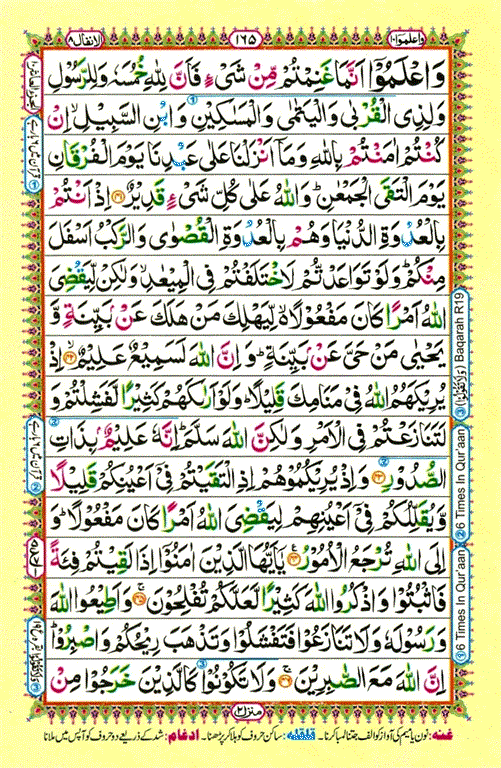 واعلموا١٠
١٦٥
الانفال٨
وَاعْلَمُوْۤا اَنَّمَا غَنِمْتُمْ مِّنْ شَیْءٍ فَاَنَّ لِلّٰهِ خُمُسَهٗ وَلِلرَّسُوْلِ
وَلِذِی الْقُرْبٰی وَالْیَتٰمٰی وَالْمَسٰكِیْنِ وَابْنِ السَّبِیْلِ ۙ اِنْ
كُنْتُمْ اٰمَنْتُمْ بِاللّٰهِ وَمَاۤ اَنْزَلْنَا عَلٰی عَبْدِنَا یَوْمَ الْفُرْقَانِ
یَوْمَ الْتَقَی الْجَمْعٰنِ ؕ وَاللّٰهُ عَلٰی كُلِّ شَیْءٍ قَدِیْرٌ ﴿۴۱﴾ اِذْ اَنْتُمْ
بِالْعُدْوَةِ الدُّنْیَا وَهُمْ بِالْعُدْوَةِ الْقُصْوٰی وَالرَّكْبُ اَسْفَلَ
مِنْكُمْ ؕ وَلَوْ تَوَاعَدْتُّمْ لَاخْتَلَفْتُمْ فِی الْمِیْعٰدِ ۙ وَلٰكِنْ لِّیَقْضِیَ
اللّٰهُ اَمْرًا كَانَ مَفْعُوْلًا ۙ۬ لِّیَهْلِكَ مَنْ هَلَكَ عَنْۢ بَیِّنَةٍ وَّ
یَحْیٰی مَنْ حَیَّ عَنْۢ بَیِّنَةٍ ؕ وَاِنَّ اللّٰهَ لَسَمِیْعٌ عَلِیْمٌ ﴿۴۲﴾ اِذْ
یُرِیْكَهُمُ اللّٰهُ فِیْ مَنَامِكَ قَلِیْلًا ؕ وَلَوْ اَرٰىكَهُمْ كَثِیْرًا لَّفَشِلْتُمْ وَ
لَتَنَازَعْتُمْ فِی الْاَمْرِ وَلٰكِنَّ اللّٰهَ سَلَّمَ ؕ اِنَّهٗ عَلِیْمٌۢ بِذَاتِ
الصُّدُوْرِ ﴿۴۳﴾ وَاِذْ یُرِیْكُمُوْهُمْ اِذِ الْتَقَیْتُمْ فِیْۤ اَعْیُنِكُمْ قَلِیْلًا
وَّیُقَلِّلُكُمْ فِیْۤ اَعْیُنِهِمْ لِیَقْضِیَ اللّٰهُ اَمْرًا كَانَ مَفْعُوْلًا ؕ وَ
اِلَی اللّٰهِ تُرْجَعُ الْاُمُوْرُ ﴿۴۴﴾ یٰۤاَیُّهَا الَّذِیْنَ اٰمَنُوْۤا اِذَا لَقِیْتُمْ فِئَةً
فَاثْبُتُوْا وَاذْكُرُوا اللّٰهَ كَثِیْرًا لَّعَلَّكُمْ تُفْلِحُوْنَ ﴿۴۵﴾ وَاَطِیْعُوا اللّٰهَ
وَرَسُوْلَهٗ وَلَا تَنَازَعُوْا فَتَفْشَلُوْا وَتَذْهَبَ رِیْحُكُمْ وَاصْبِرُوْا ؕ
اِنَّ اللّٰهَ مَعَ الصّٰبِرِیْنَ ﴿۴۶﴾ وَلَا تَكُوْنُوْا كَالَّذِیْنَ خَرَجُوْا مِنْ
منزل٢
غنہ: نون یا میم کی آواز کو الف جتنا لمبا کرنا۔ قلقلہ: ساکن حروف کو ہلا کر پڑھنا۔ ادغام: شد کے ذریعے دو حروف کو آپس میں ملانا
③ (وَلَا تَكُوْنُوْا) Baqarah R19
② 6 Times In Qur'aan
① 6 Times In Qur'aan